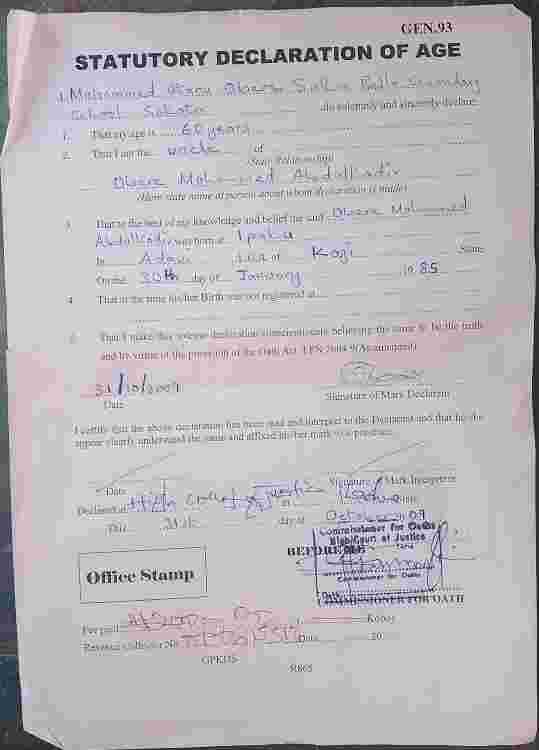 GEN.93
STATUTORY DECLARATION OF AGE
I, Mohammed
School do solemnly and sincerely declare
1. That my age is 60 years
2. That I am the uncle of
(State Relationship)
Obere Mohammed Abdulkadir
(Here state name of person about whom declaration is made)
3. That to the best of my knowledge and belief the said Obere Mohammed
Abdulkadir was born at
In Adavi LGA of Kogi State
On the 30th day of January 19 85
4. That at the time his/her Birth was not registered at
5. That I make this solemn declaration conscientiously believing the same to be the truth
and by virtue of the provision of the Oath Act. LFN 2004
31/10/2009
Date Signature of Mark Declarant
I certify that the above declaration has been read and interpret to the Declarant and that he/she
appear clearly understand the same and affixed his/her mark in my presence.
Date Signature / Mark Interpreter
Declared at High Court of Justice
This 31st day of October 09
Commissioner for Oaths
High Court of Justice
BEFORE ME
Commissioner for Oaths
Office Stamp
COMMISSIONER FOR OATH
Fee paid Kobo
Revenue Collector No Date 20
GPKDS
R865